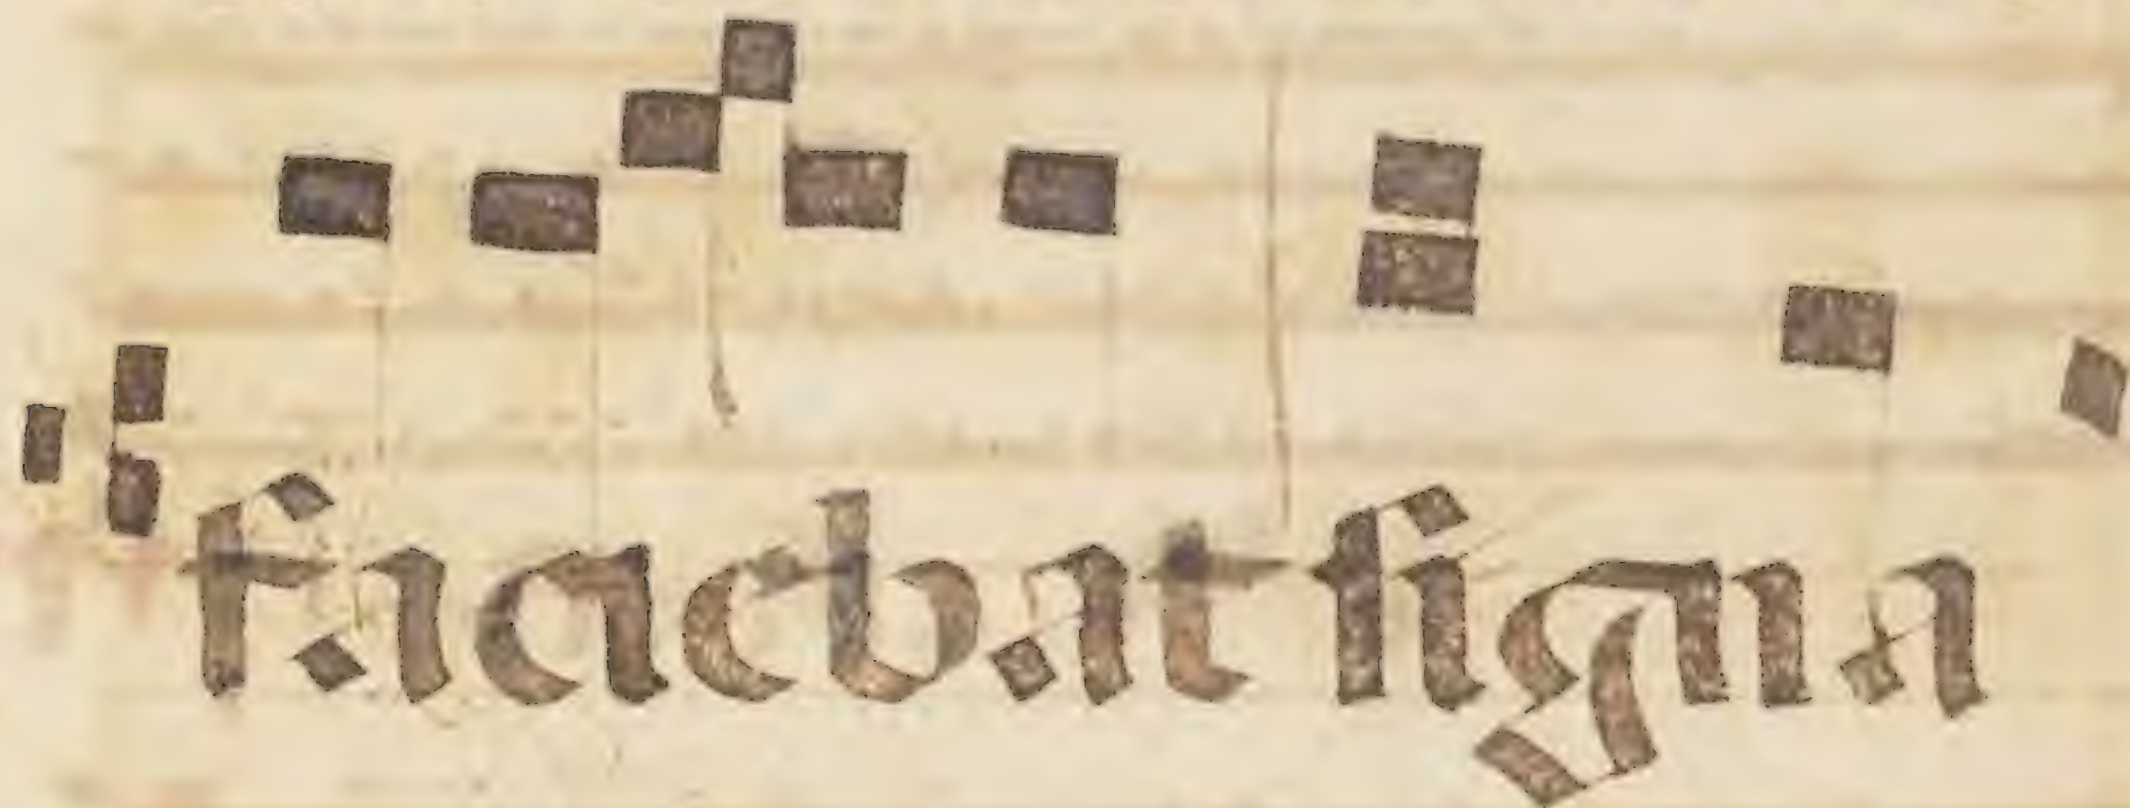 faciebat ſigna